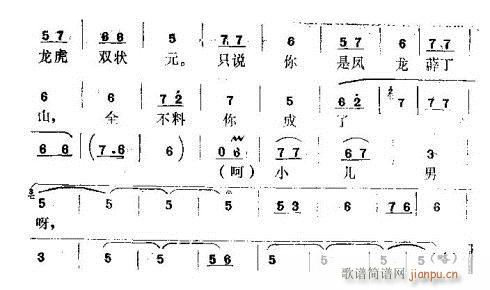 5 7 6 6 5 7 7 6 5 7 6 7 7
龙虎 双状 元。 只说 你 是凤 龙 薛丁
6 6 7 2 7 5 6 2 7 7 7
山, 全 不料 你 成 了
6 6 (7·6 6) 0 6 7 7 6 7 3
(呵) 小 儿 男
5 5 5 5 5 3 6 7 6
呀,
3 5 5 5 6 5 5 5
歌谱简谱网
jianpu.cn